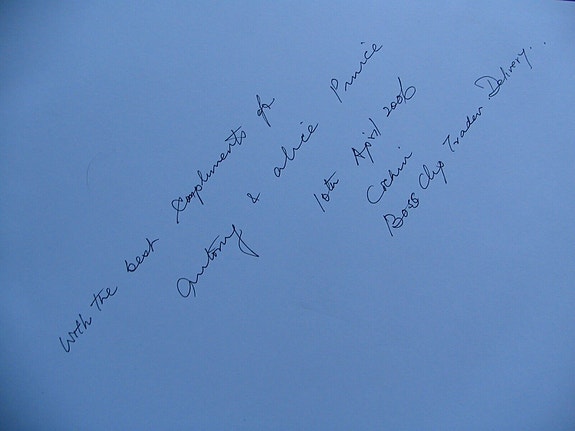 With the best Compliments of
Antony & Alice Prince
10th April 2006
Cochin
Boss Chip Trader Delivery..